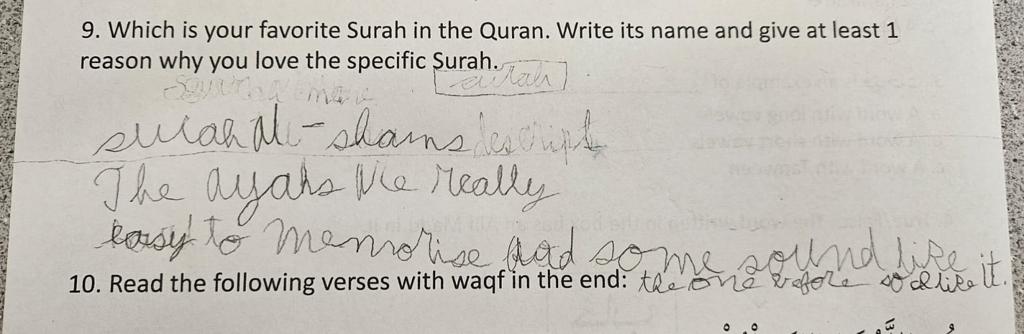 9. Which is your favorite Surah in the Quran. Write its name and give at least 1
reason why you love the specific Surah.
surah
surah Al-shams descript
The ayahs Are really
easy to memorise and some sound like
10. Read the following verses with waqf in the end: the one before so I like it.